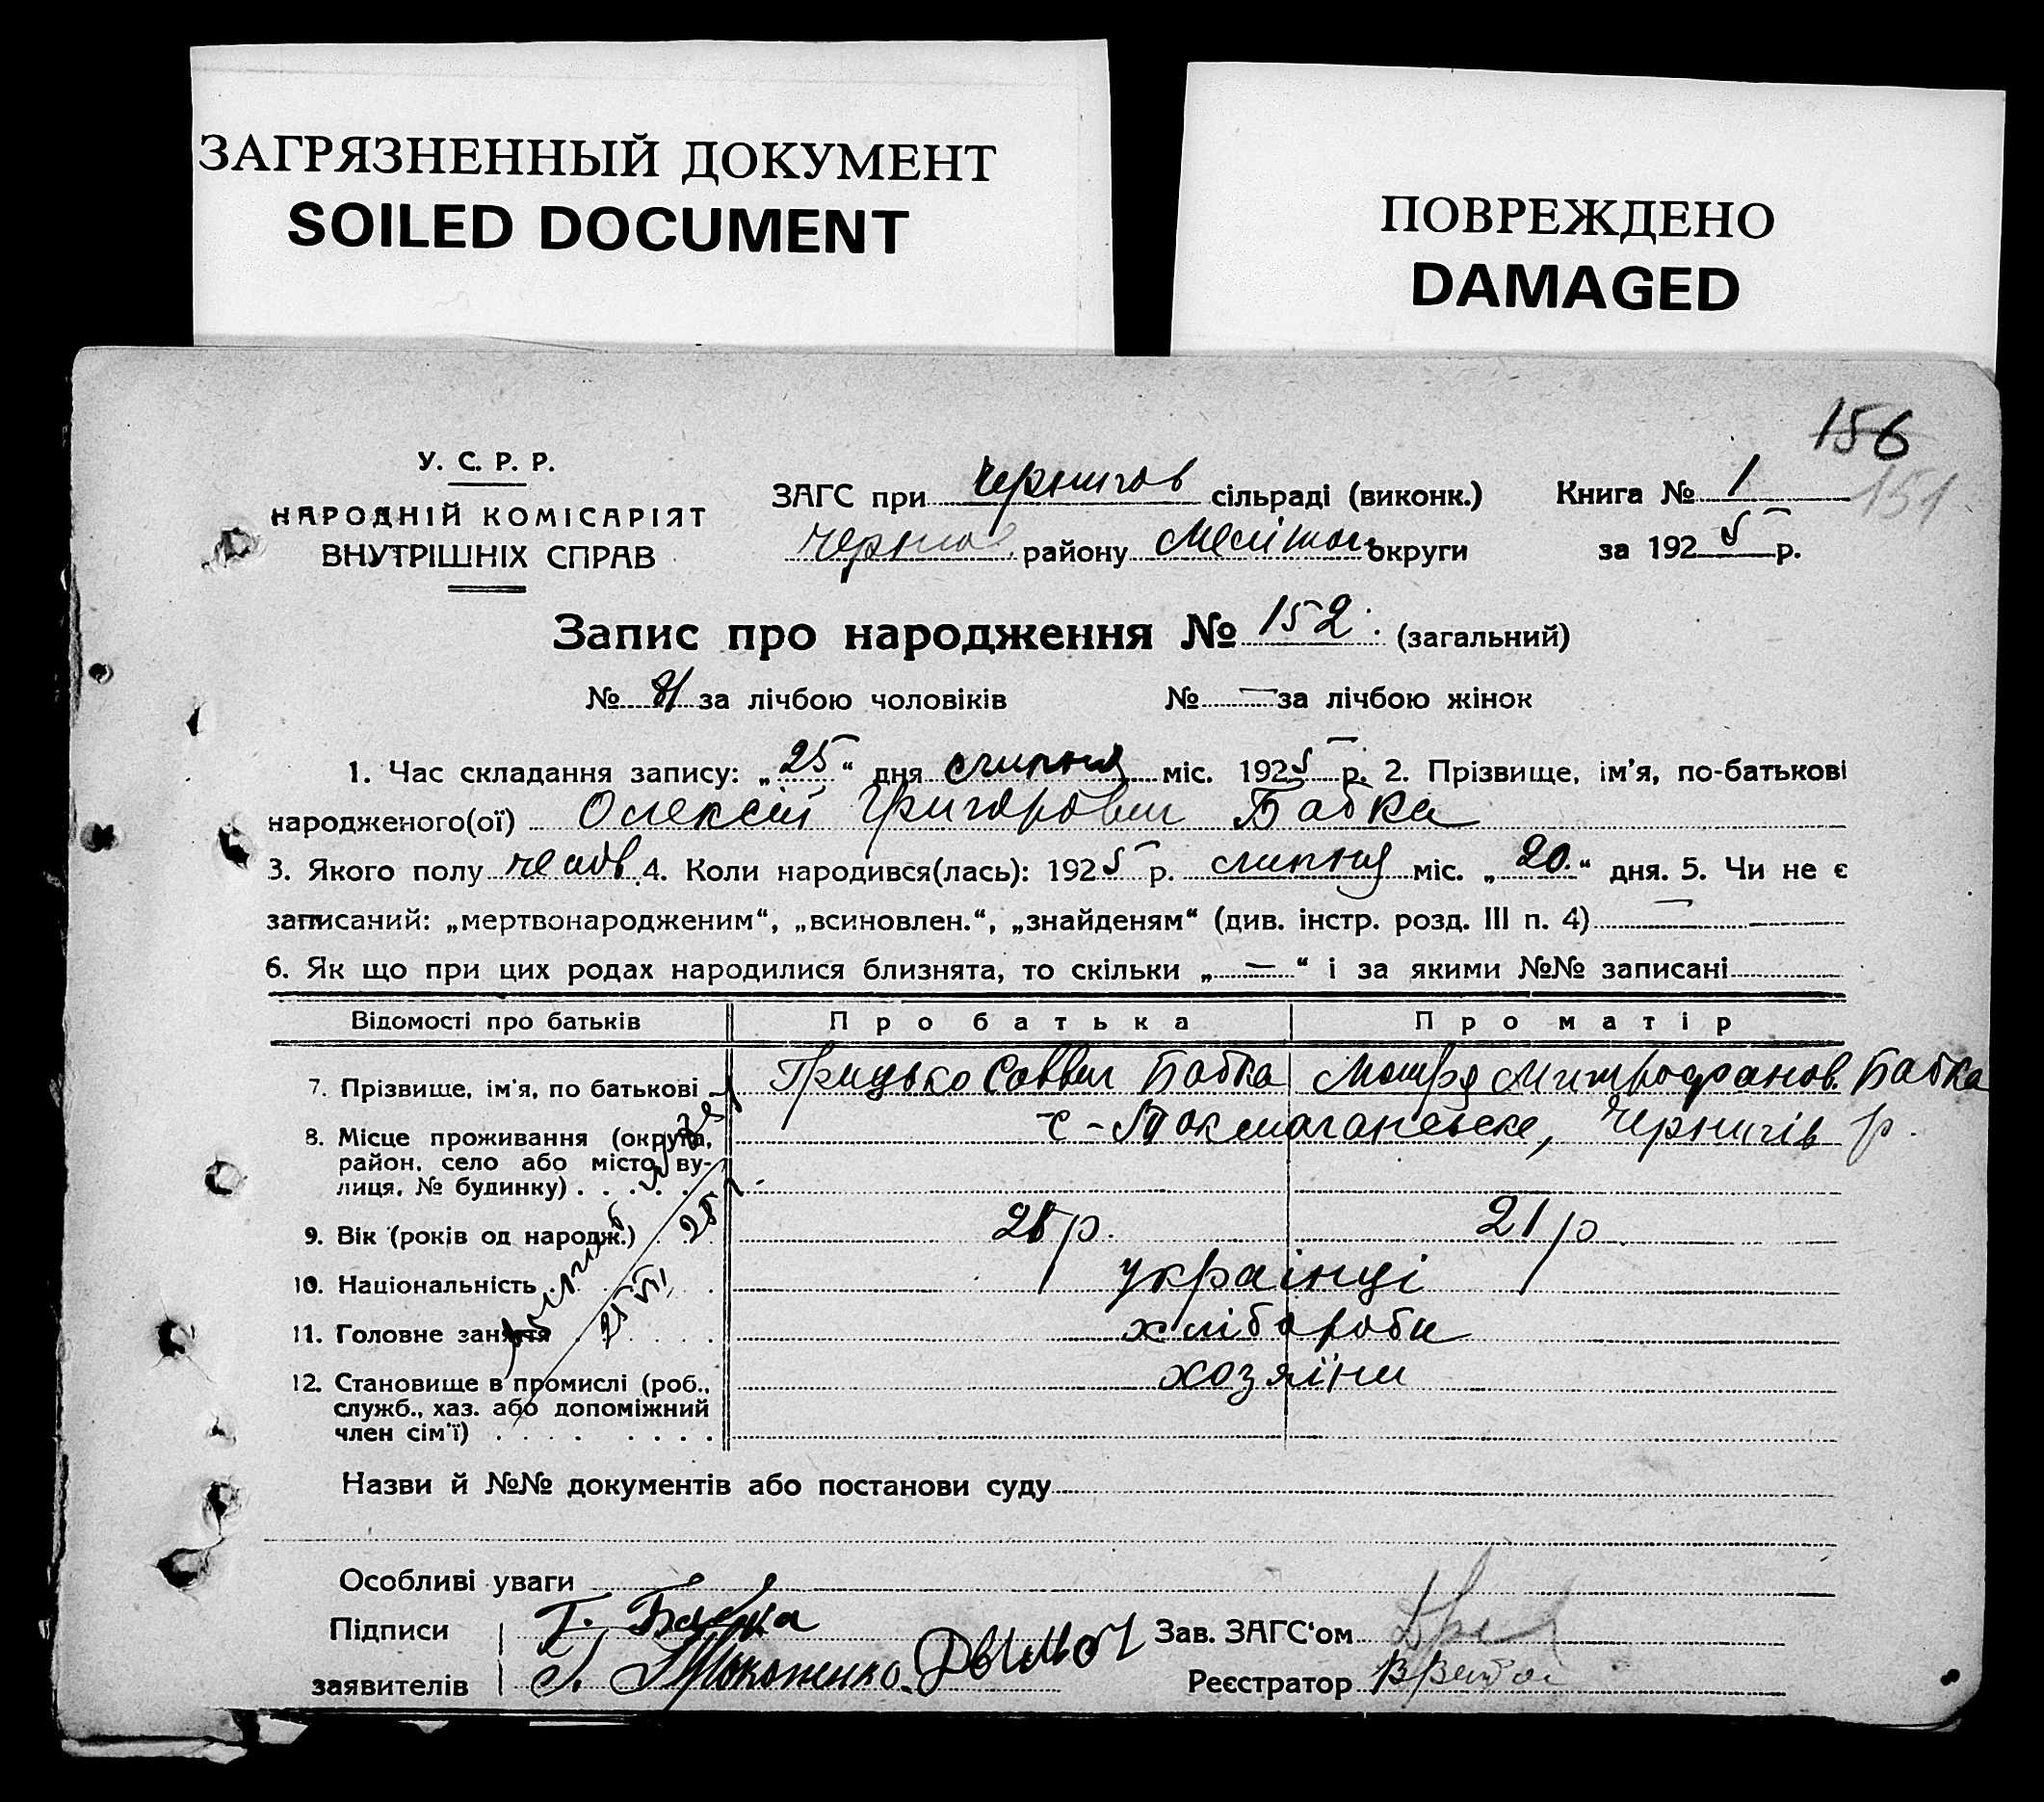 ЗАГРЯЗНЕННЫЙ ДОКУМЕНТ
SOILED DOCUMENT
ПОВРЕЖДЕНО
DAMAGED
156
151
У. С. Р. Р.
НАРОДНІЙ КОМІСАРІЯТ
ВНУТРІШНІХ СПРАВ
ЗАГС при Чернигов сільраді (виконк.) Книга № 1
району Мелітоп. округи за 1925 р.
Запис про народження № 152. (загальний)
№ 81 за лічбою чоловіків № — за лічбою жінок
1. Час складання запису: „25“ дня липня міс. 1925 р. 2. Прізвище, ім'я, по-батькові
народженого(ої) Олексій Григорович Бабка
3. Якого полу чолов. 4. Коли народився(лась): 1925 р. липня міс. „20.“ дня. 5. Чи не є
записаний: „мертвонародженим“, „всиновлен.“, „знайденям“ (див. інстр. розд. III п. 4) —
6. Як що при цих родах народилися близнята, то скільки „—“ і за якими №№ записані
Відомості про батьків Про батька Про матір
7. Прізвище, ім'я, по батькові Грицько Саввич Бабка Мотря Митрофанов. Бабка
8. Місце проживання (округа, район, село або місто, ву-
лиця, № будинку) с- Чернигів р.
9. Вік (років од народж.) 25 р. 21 р
10. Національність українці
11. Головне заняття хлібороби
12. Становище в промислі (роб., хозяїни
служб., хаз. або допоміжний
член сім'ї)
25
25 VII
Назви й №№ документів або постанови суду
Особливі уваги
Підписи Г. Бабка Зав. ЗАГС'ом
заявителів Г. Реєстратор